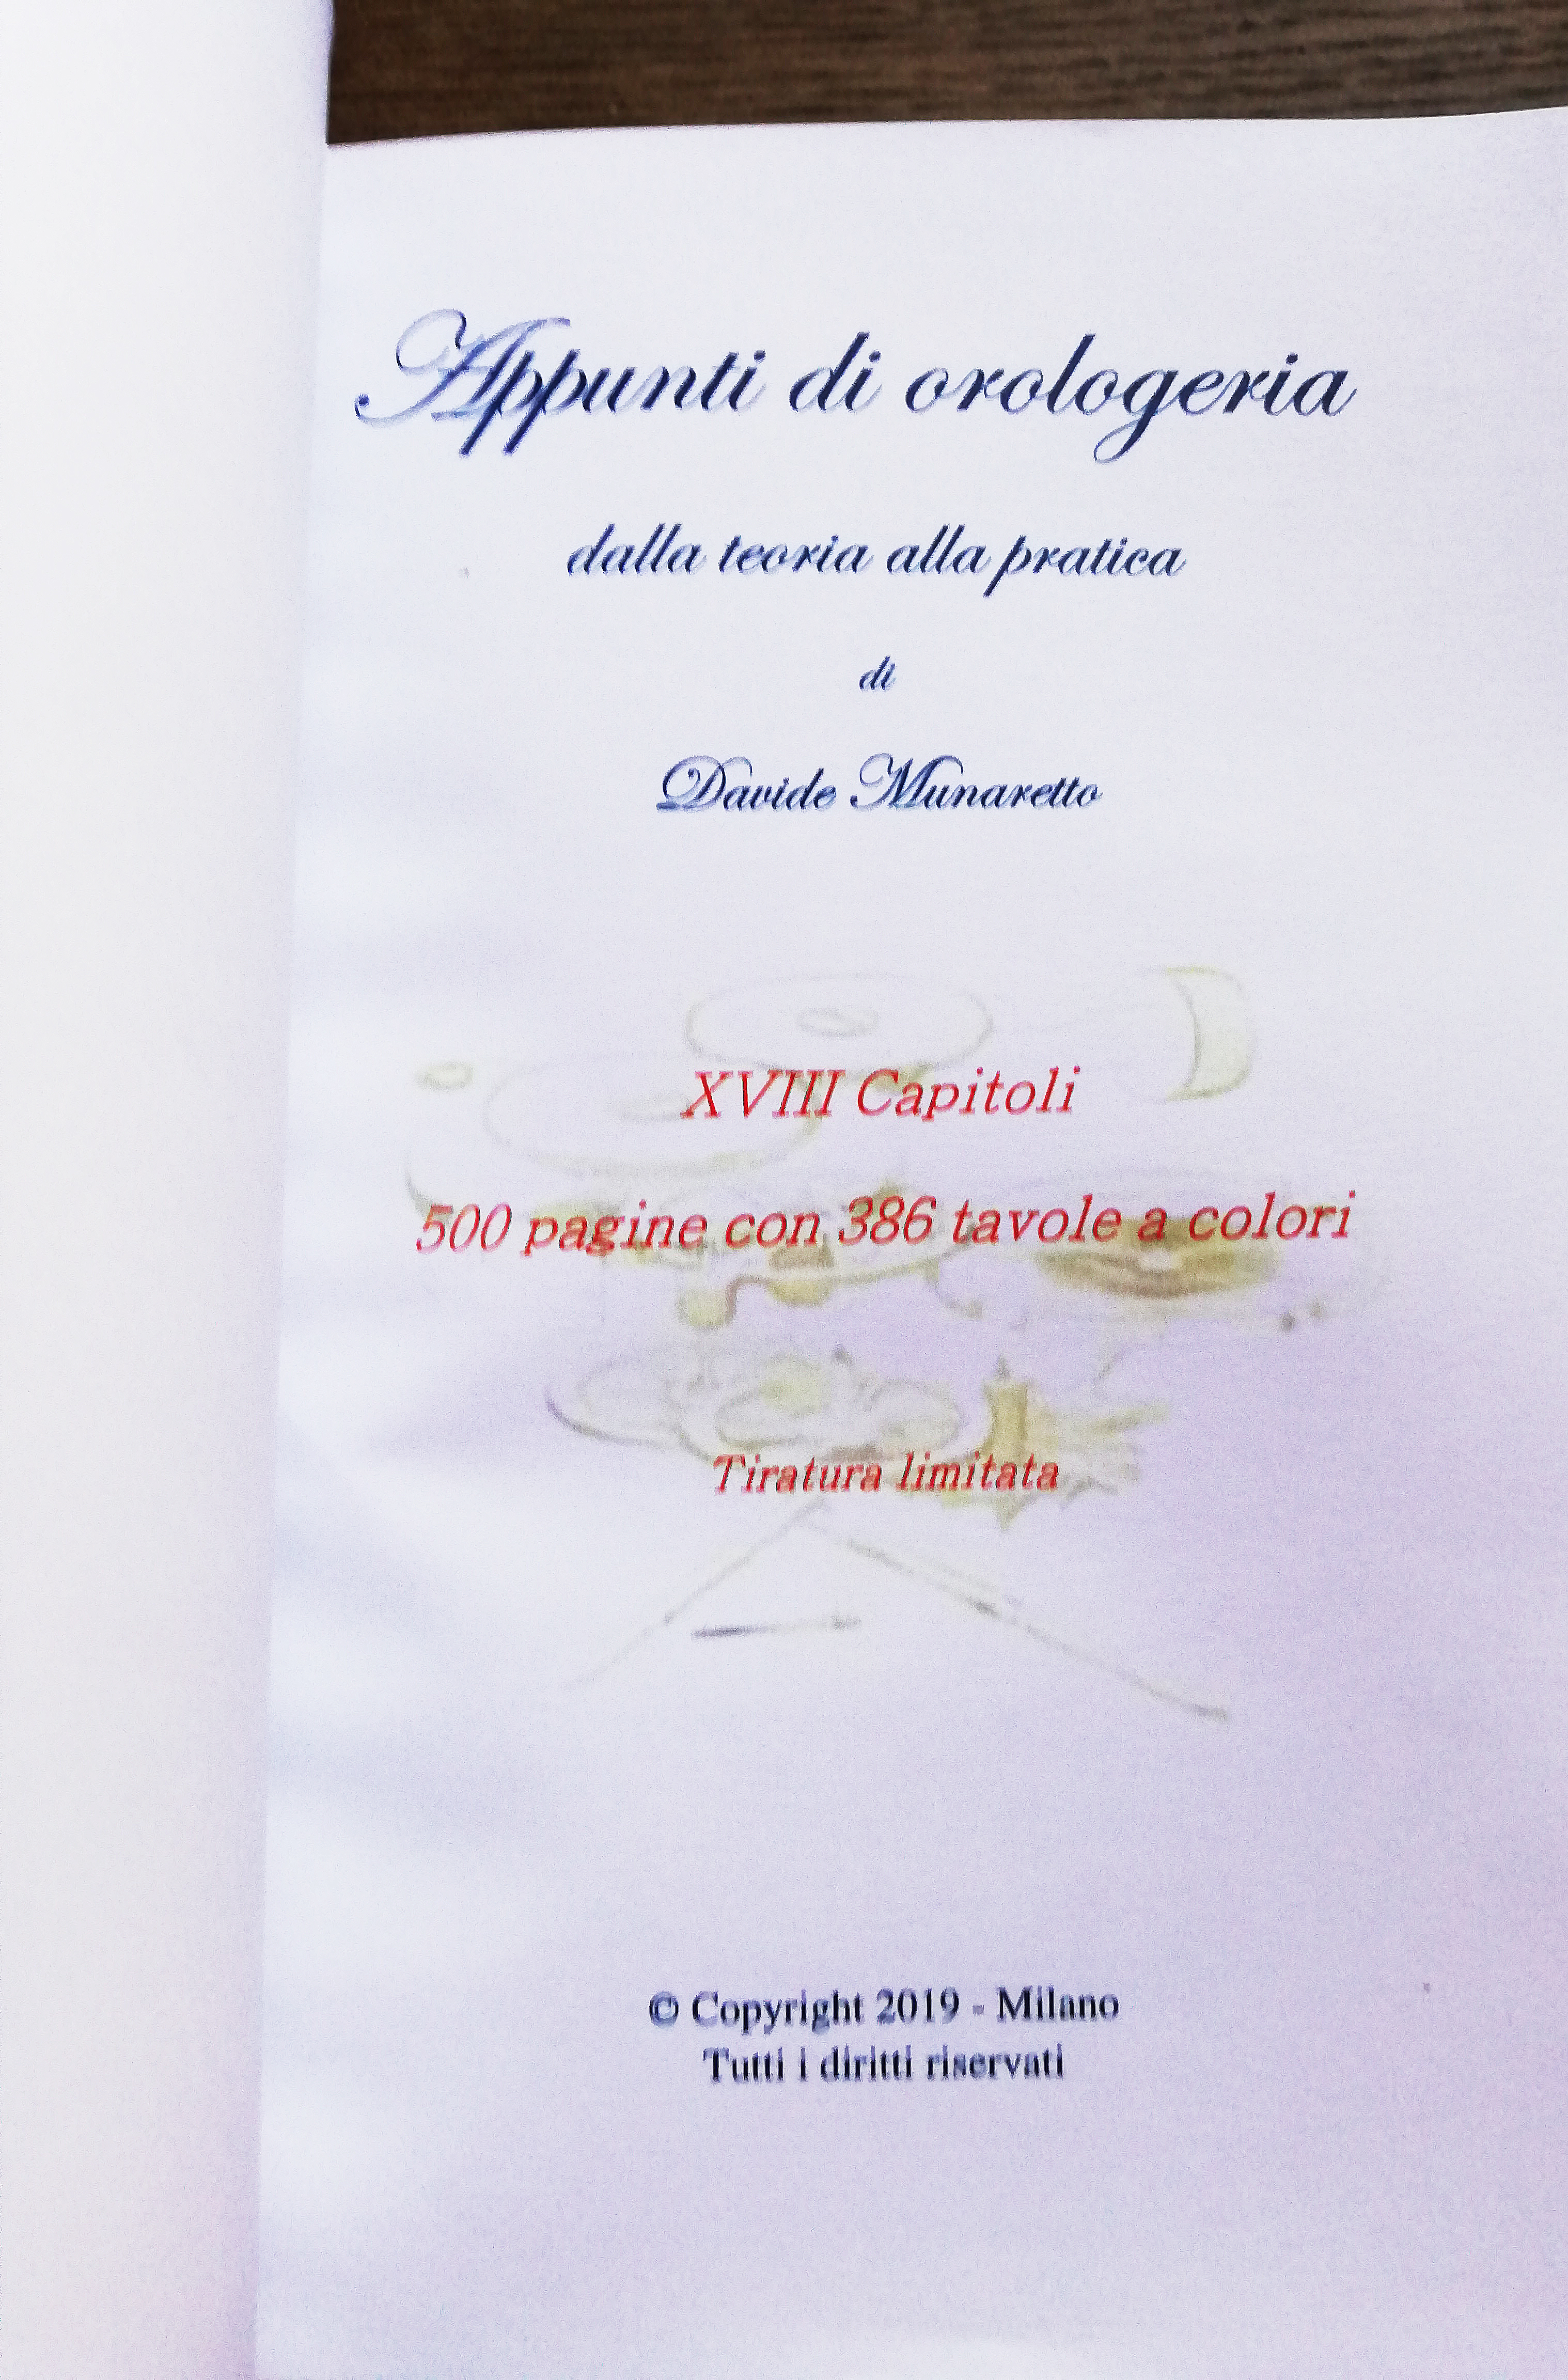 Appunti di orologeria
dalla teoria alla pratica
di
Davide Munaretto
XVIII Capitoli
500 pagine con 386 tavole a colori
Tiratura limitata
© Copyright 2019 - Milano
Tutti i diritti riservati